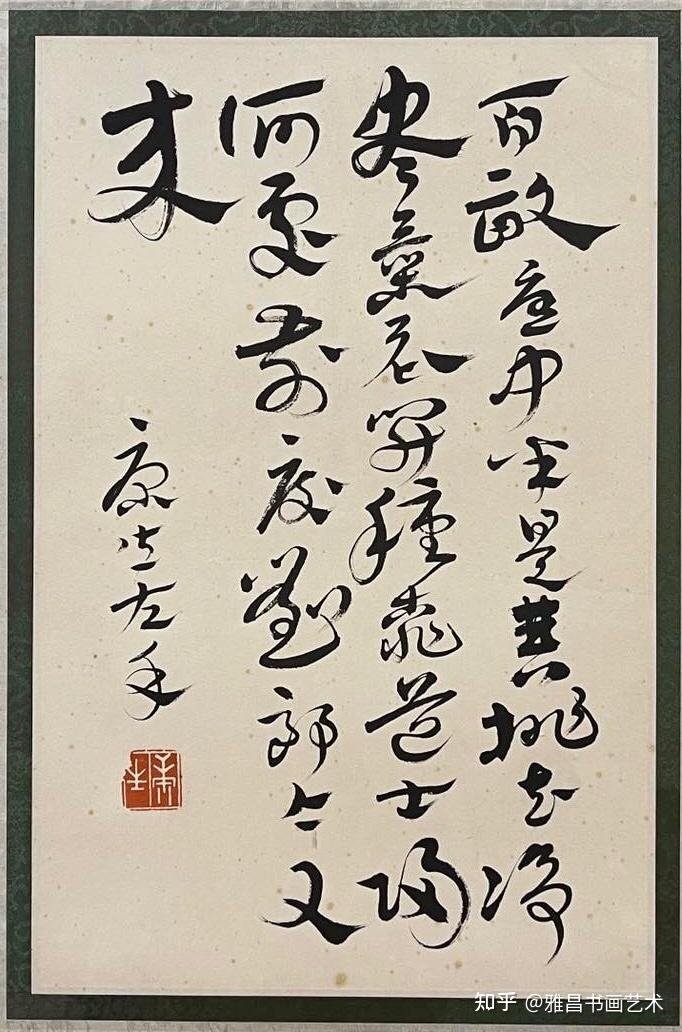 百畝庭中半是苔桃花淨
盡菜花開種桃道士歸
何處前度劉郎今又
來
康生左手
康生
知乎 @雅昌书画艺术